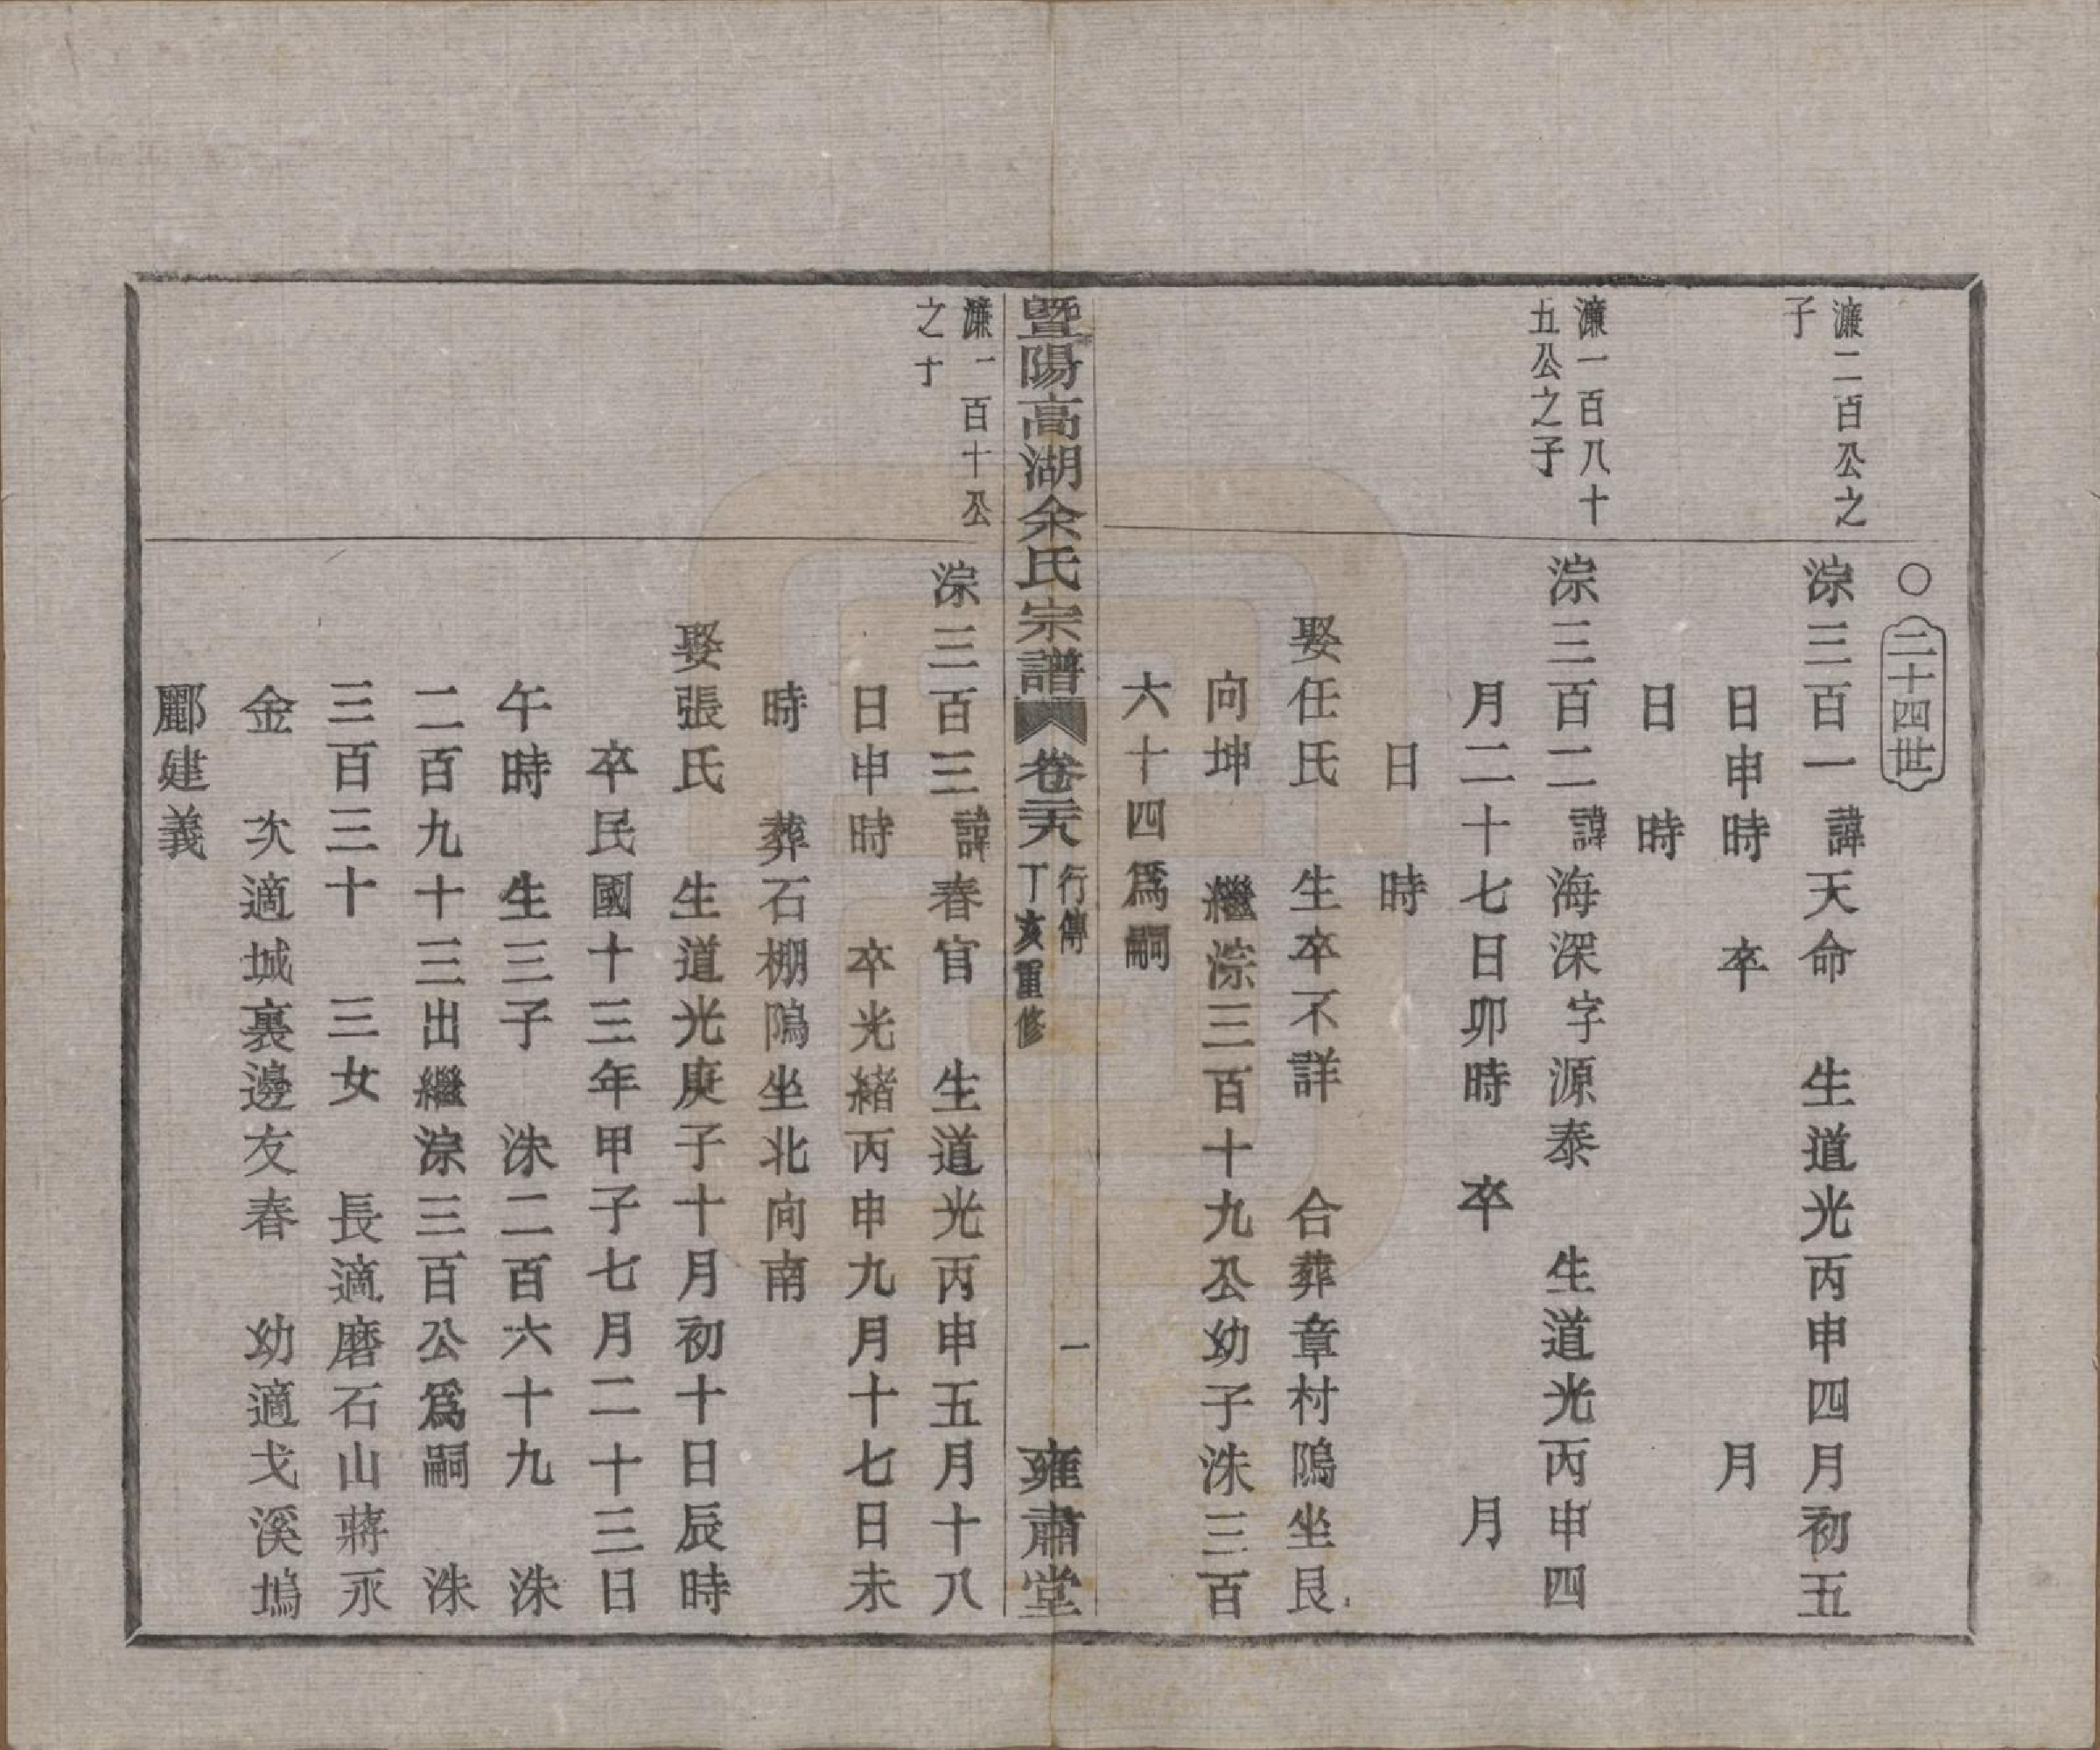 ○二十四世
濂二百公之
子
淙三百一諱天命　生道光丙申四月初五
日申時　卒　月
日　時
濂一百八十
五公之子
淙三百二諱海深字源泰　生道光丙申四
月二十七日卯時　卒　月
日　時
娶任氏　生卒不詳　合葬章村隝坐艮
向坤　繼淙三百十九公幼子洙三百
六十四爲嗣
暨陽高湖余氏宗譜　卷二十六　行傳　丁亥重修　一　雍肅堂
濂一百十公
之子
淙三百三諱春官　生道光丙申五月十八
日申時　卒光緒丙申九月十七日未
時　葬石棚隝坐北向南
娶張氏　生道光庚子十月初十日辰時
卒民國十三年甲子七月二十三日
午時　生三子　洙二百六十九　洙
二百九十三出繼淙三百公爲嗣　洙
三百三十　三女　長適磨石山蔣永
金　次適城裏邊友春　幼適戈溪塢
酈建義